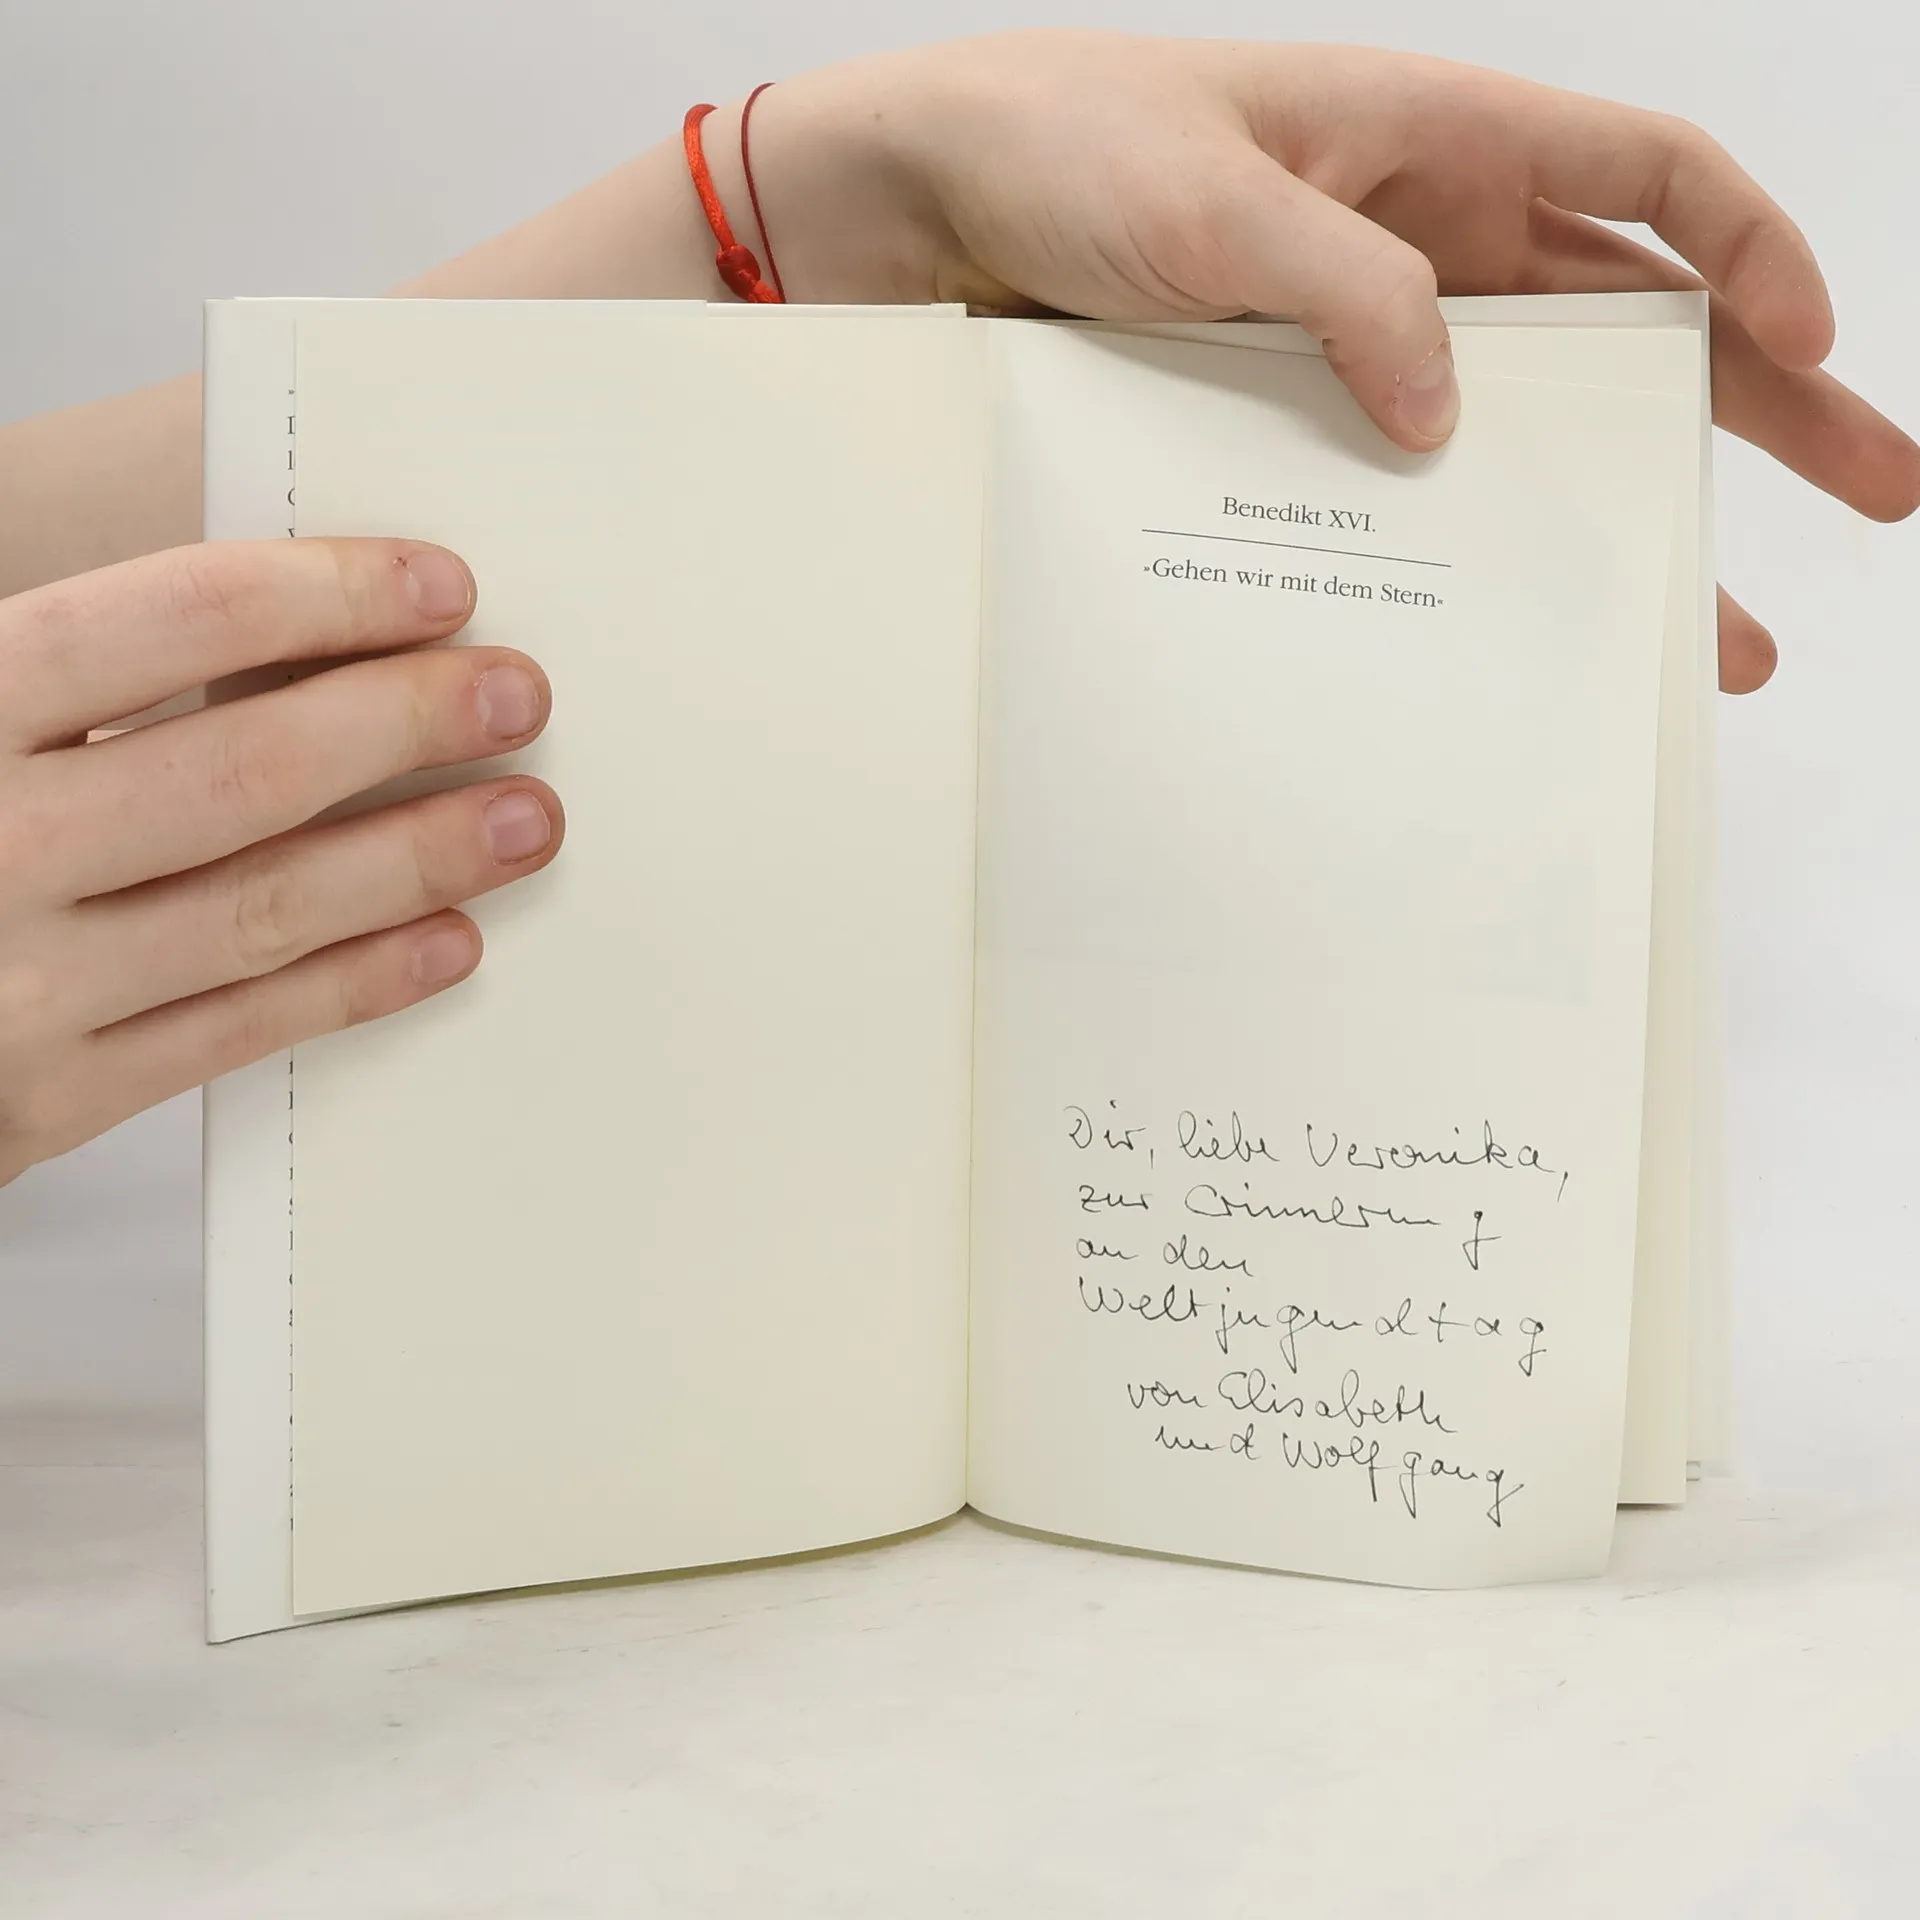 Benedikt XVI.
»Gehen wir mit dem Stern«
Dir, liebe Veronika,
zur Erinnerung
an den
Weltjugendtag
von Elisabeth
und Wolfgang